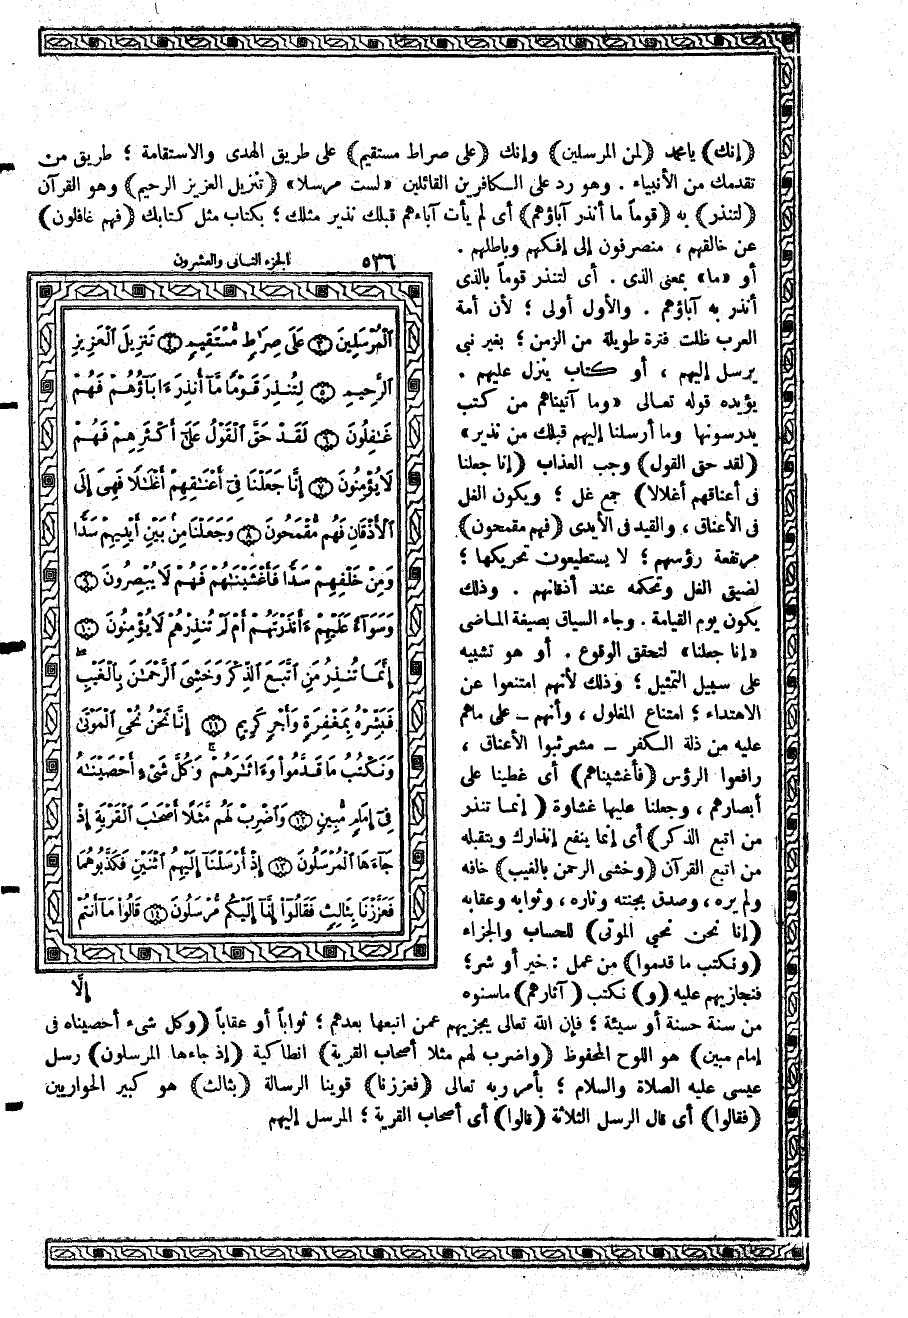 (إنك) يامحمد (لمن المرسلين) وإنك (على صراط مستقيم) على طريق الهدى والاستقامة ؛ طريق من
تقدمك من الأنبياء . وهو رد على الكافرين القائلين «لست مرسلا» (تنزيل العزيز الرحيم) وهو القرآن
(لتنذر) به (قوماً ما أنذر آباؤهم) أى لم يأت آباءهم قبلك نذير مثلك ؛ بكتاب مثل كتابك (فهم غافلون)
عن خالقهم ، منصرفون إلى إفكهم وباطلهم .
أو «ما» بمعنى الذى . أى لتنذر قوماً بالذى
أنذر به آباؤهم . والأول أولى ؛ لأن أمة
العرب ظلت فترة طويلة من الزمن ؛ بغير نبى
يرسل إليهم ، أو كتاب ينزل عليهم .
يؤيده قوله تعالى «وما آتيناهم من كتب
يدرسونها وما أرسلنا إليهم قبلك من نذير»
(لقد حق القول) وجب العذاب (إنا جعلنا
فى أعناقهم أغلالا) جمع غل ؛ ويكون الغل
فى الأعناق ، والقيد فى الأيدى (فهم مقمحون)
مرتفعة رؤسهم ؛ لا يستطيعون تحريكها ؛
لضيق الغل وتحكمه عند أذقانهم . وذلك
يكون يوم القيامة . وجاء السياق بصيغة الماضى
«إنا جعلنا» لتحقق الوقوع . أو هو تشبيه
على سبيل التمثيل ؛ وذلك لأنهم امتنعوا عن
الاهتداء ؛ امتناع المغلول ، وأنهم – على ماهم
عليه من ذلة الكفر – مشرئبوا الأعناق ،
رافعوا الرؤس (فأغشيناهم) أى غطينا على
أبصارهم ، وجعلنا عليها غشاوة (إنما تنذر
من اتبع الذكر) أى إنما ينفع إنذارك ويتقبله
من اتبع القرآن (وخشى الرحمن بالغيب) خافه
ولم يره ، وصدق بجنته وناره ، وثوابه وعقابه
(إنا نحن نحيي الموتى) للحساب والجزاء
(ونكتب ما قدموا) من عمل : خير أو شر ؛
فنجازيهم عليه (و) نكتب (آثارهم) ماسنوه
الجزء الثانى والعشرون ٥٣٦
ٱلْمُرْسَلِينَ ﴿٣﴾ عَلَىٰ صِرَٰطٍ مُّسْتَقِيمٍ ﴿٤﴾ تَنزِيلَ ٱلْعَزِيزِ
ٱلرَّحِيمِ ﴿٥﴾ لِتُنذِرَ قَوْمًا مَّآ أُنذِرَ ءَابَآؤُهُمْ فَهُمْ
غَٰفِلُونَ ﴿٦﴾ لَقَدْ حَقَّ ٱلْقَوْلُ عَلَىٰٓ أَكْثَرِهِمْ فَهُمْ
لَا يُؤْمِنُونَ ﴿٧﴾ إِنَّا جَعَلْنَا فِىٓ أَعْنَٰقِهِمْ أَغْلَٰلًا فَهِىَ إِلَى
ٱلْأَذْقَانِ فَهُم مُّقْمَحُونَ ﴿٨﴾ وَجَعَلْنَا مِنۢ بَيْنِ أَيْدِيهِمْ سَدًّا
وَمِنْ خَلْفِهِمْ سَدًّا فَأَغْشَيْنَٰهُمْ فَهُمْ لَا يُبْصِرُونَ ﴿٩﴾
وَسَوَآءٌ عَلَيْهِمْ ءَأَنذَرْتَهُمْ أَمْ لَمْ تُنذِرْهُمْ لَا يُؤْمِنُونَ ﴿١٠﴾
إِنَّمَا تُنذِرُ مَنِ ٱتَّبَعَ ٱلذِّكْرَ وَخَشِىَ ٱلرَّحْمَٰنَ بِٱلْغَيْبِ
فَبَشِّرْهُ بِمَغْفِرَةٍ وَأَجْرٍ كَرِيمٍ ﴿١١﴾ إِنَّا نَحْنُ نُحْىِ ٱلْمَوْتَىٰ
وَنَكْتُبُ مَا قَدَّمُوا۟ وَءَاثَٰرَهُمْ ۚ وَكُلَّ شَىْءٍ أَحْصَيْنَٰهُ
فِىٓ إِمَامٍ مُّبِينٍ ﴿١٢﴾ وَٱضْرِبْ لَهُم مَّثَلًا أَصْحَٰبَ ٱلْقَرْيَةِ إِذْ
جَآءَهَا ٱلْمُرْسَلُونَ ﴿١٣﴾ إِذْ أَرْسَلْنَآ إِلَيْهِمُ ٱثْنَيْنِ فَكَذَّبُوهُمَا
فَعَزَّزْنَا بِثَالِثٍ فَقَالُوٓا۟ إِنَّآ إِلَيْكُم مُّرْسَلُونَ ﴿١٤﴾ قَالُوا۟ مَآ أَنتُمْ
إِلَّا
من سنة حسنة أو سيئة ؛ فإن الله تعالى يجزيهم عمن اتبعها بعدهم ؛ ثواباً أو عقاباً (وكل شىء أحصيناه فى
إمام مبين) هو اللوح المحفوظ (واضرب لهم مثلا أصحاب القرية) انطاكية (إذ جاءها المرسلون) رسل
عيسى عليه الصلاة والسلام ؛ بأمر ربه تعالى (فعززنا) قوينا الرسالة (بثالث) هو كبير الحواريين
(فقالوا) أى قال الرسل الثلاثة (قالوا) أى أصحاب القرية ؛ المرسل إليهم